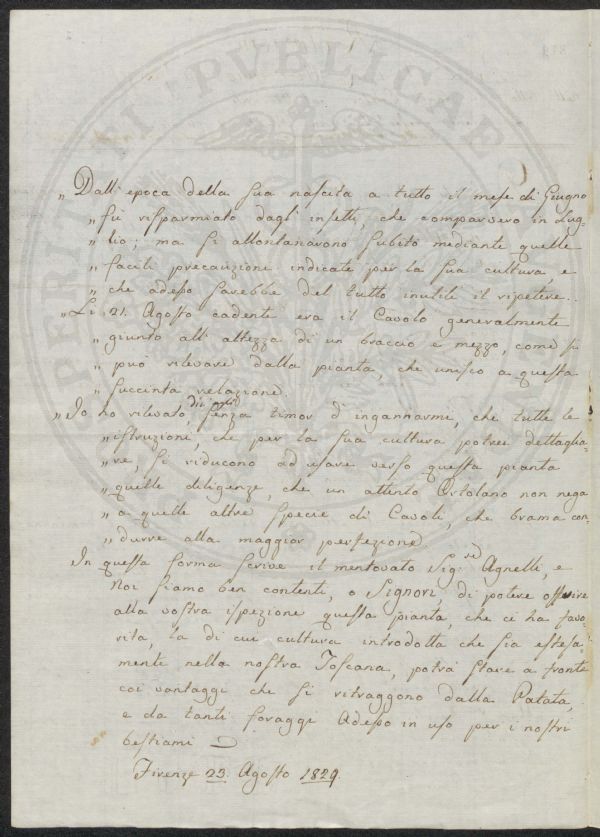 PERITVRI PVBLICAE
„ Dall' epoca della sua nascita a tutto il mese di Giugno
„ fù risparmiato dagl' insetti, che comparvero in Lug-
„ lio; ma si allontanarono subito mediante quelle
„ facili precauzione indicate per la sua cultura, e
„ che adesso sarebbe del tutto inutile il ripetere.
„ Li 21. Agosto cadente era il Cavolo generalmente
„ giunto all' altezza di un braccio e mezzo, come si
„ può rilevare dalla pianta, che unisco a questa
„ succinta relazione.
„ Io ho rilevato, senza timor d' ingannarmi, che tutte le
„ istruzioni, che per la sua cultura potrei dettaglia-
„ re, si riducono ad usare verso questa pianta
„ quelle diligenze, che un attento Ortolano non nega
„ a quelle altre specie di Cavoli, che brama con-
„ durre alla maggior perfezione
In questa forma scrive il mentovato Sig: Agnelli, e
Noi siamo ben contenti, o Signori di potere offrire
alla vostra ispezione questa pianta, che ci ha favo-
rita, la di cui cultura introdotta che sia estesa-
mente nella nostra Toscana, potrà stare a fronte
coi vantaggi che si ritraggono dalla Patata,
e da tanti foraggi adesso in uso per i nostri
bestiami
Firenze 23. Agosto 1829.